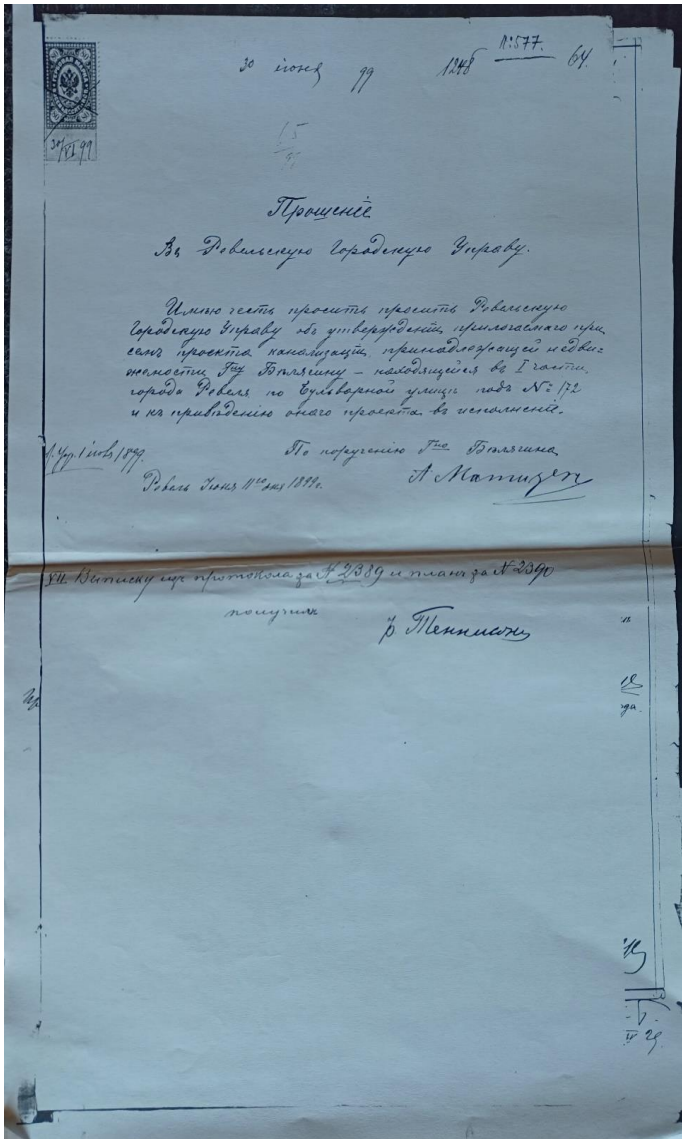 № 577.
30 іюня 99 1248 64.
30/VI 99
15
Прошеніе
Въ Ревельскую Городскую Управу.
Имѣю честь просить просить Ревельскую
Городскую Управу объ утвержденіи прилогаемаго при
семъ проекта канализаціи принадлежащей недви-
жемости Гну Бѣлягину – находящейся въ I части
города Ревеля по Бульварной улицѣ подъ № 172
и къ привѣденію онаго проекта въ исполненіе.
По порученію Гна Бѣлягина
1899.
Ревель Іюня 11го дня 1899г.
А Матизен
VII Выписку изъ протокола за № 2389 и планъ за № 2390
получилъ
Теннисонъ